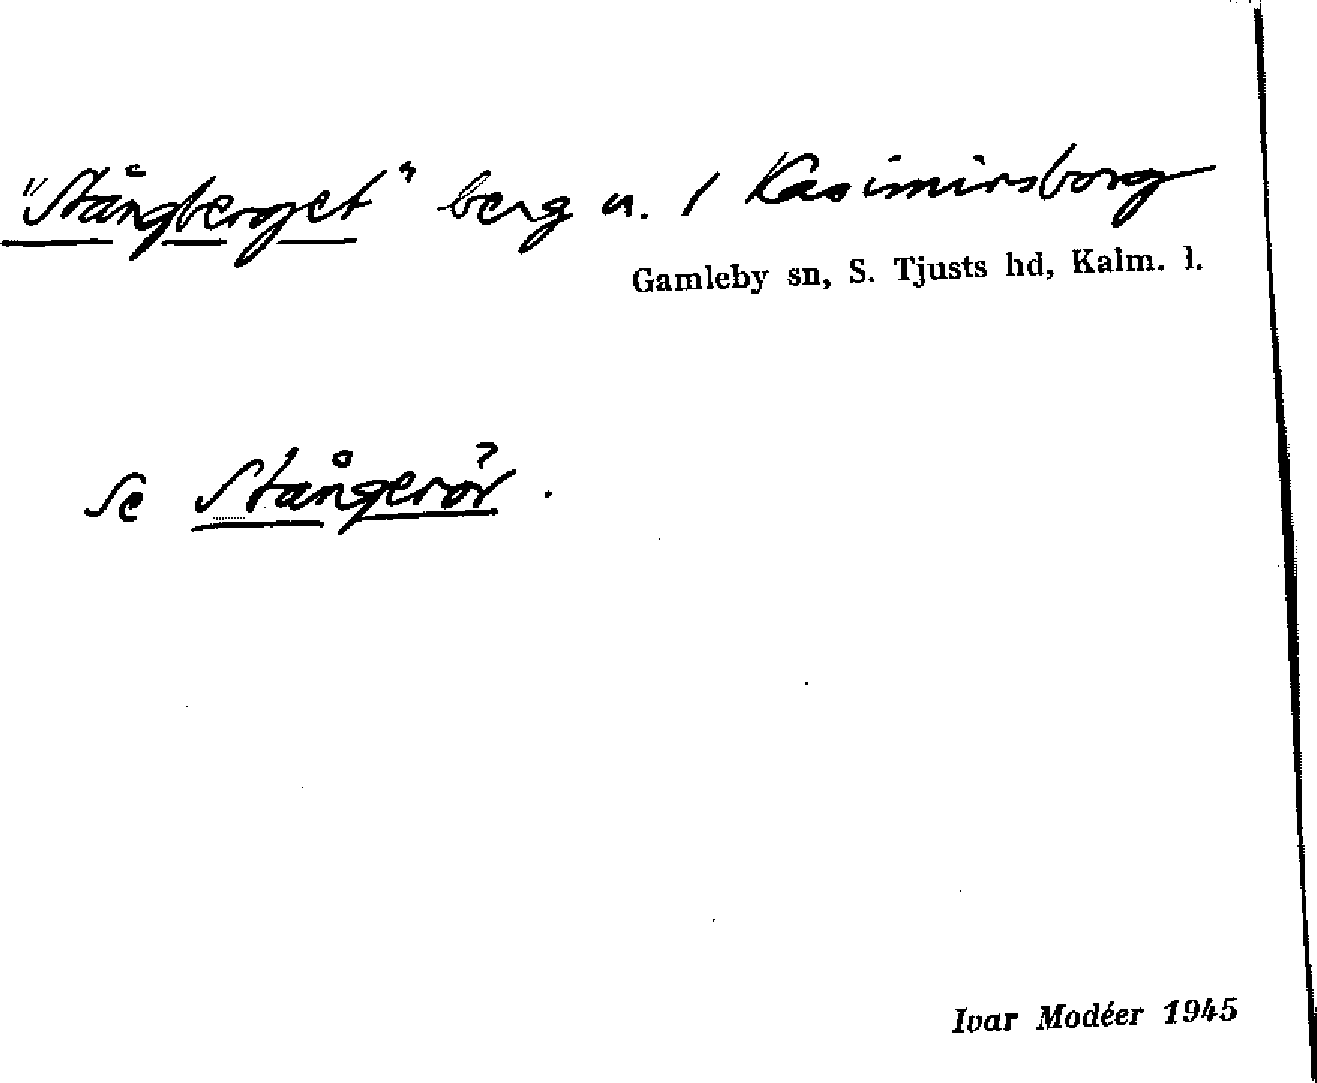 "Stångberget" berg u. / Kasimirsborg
Gamleby sn, S. Tjusts hd, Kalm. l.
se Stångerör.
Ivar Modéer 1945